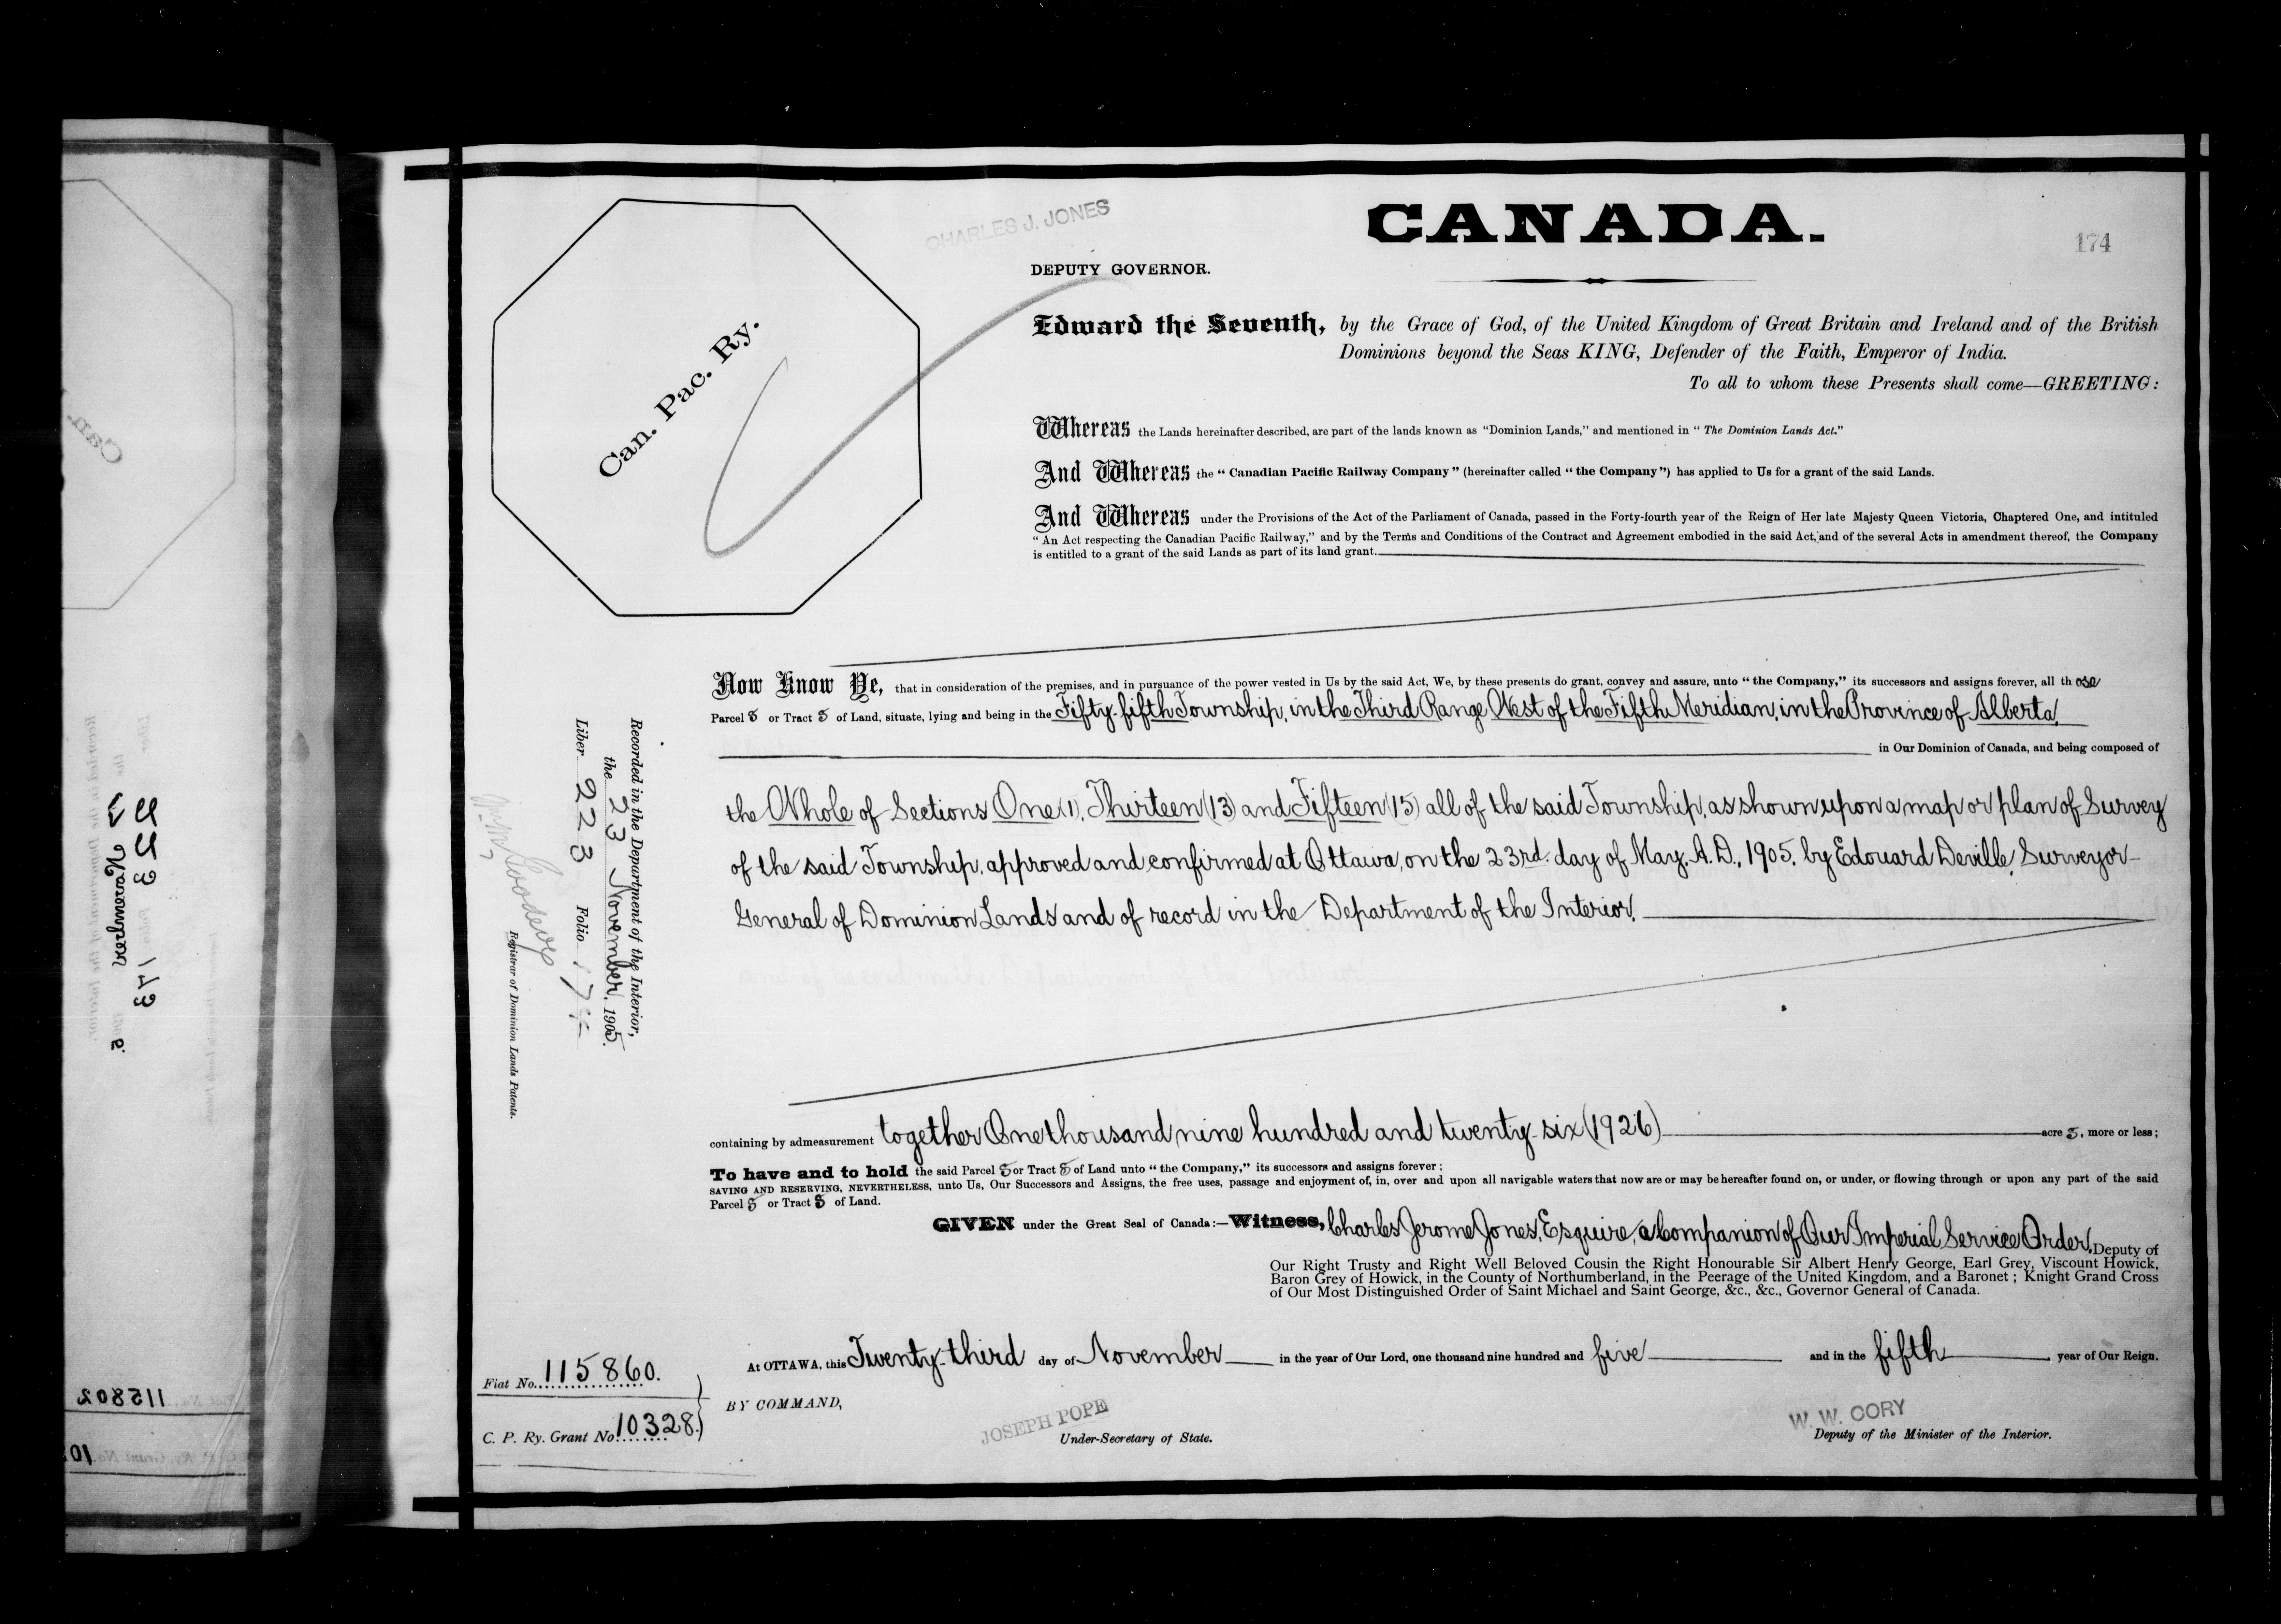 CHARLES J. JONES
CANADA.
174
DEPUTY GOVERNOR.
Can. Pac. Ry.
Edward the Seventh, by the Grace of God, of the United Kingdom of Great Britain and Ireland and of the British
Dominions beyond the Seas KING, Defender of the Faith, Emperor of India.
To all to whom these Presents shall come—GREETING:
Whereas the Lands hereinafter described, are part of the lands known as "Dominion Lands," and mentioned in "The Dominion Lands Act."
And Whereas the "Canadian Pacific Railway Company" (hereinafter called "the Company") has applied to Us for a grant of the said Lands.
And Whereas under the Provisions of the Act of the Parliament of Canada, passed in the Forty-fourth year of the Reign of Her late Majesty Queen Victoria, Chaptered One, and intituled
"An Act respecting the Canadian Pacific Railway," and by the Terms and Conditions of the Contract and Agreement embodied in the said Act, and of the several Acts in amendment thereof, the Company
is entitled to a grant of the said Lands as part of its land grant.
Now Know Ye, that in consideration of the premises, and in pursuance of the power vested in Us by the said Act, We, by these presents do grant, convey and assure, unto "the Company," its successors and assigns forever, all those
Parcel s or Tract s of Land, situate, lying and being in the Fifty-fifth Township, in the Third Range West of the Fifth Meridian, in the Province of Alberta,
in Our Dominion of Canada, and being composed of
the Whole of Sections One (1), Thirteen (13) and Fifteen (15) all of the said Township, as shown upon a map or plan of Survey
of the said Township, approved and confirmed at Ottawa, on the 23rd. day of May, A.D., 1905, by Edouard Deville, Surveyor-
General of Dominion Lands and of record in the Department of the Interior.
Recorded in the Department of the Interior,
the 23 November, 1905.
Liber 223 Folio 174
Registrar of Dominion Lands Patents.
containing by admeasurement together One thousand nine hundred and twenty-six (1926) acre s, more or less;
To have and to hold the said Parcel s or Tract s of Land unto "the Company," its successors and assigns forever;
SAVING AND RESERVING, NEVERTHELESS, unto Us, Our Successors and Assigns, the free uses, passage and enjoyment of, in, over and upon all navigable waters that now are or may be hereafter found on, or under, or flowing through or upon any part of the said
Parcel s or Tract s of Land.
GIVEN under the Great Seal of Canada:—Witness, Charles Jerome Jones, Esquire, a Companion of Our Imperial Service Order, Deputy of
Our Right Trusty and Right Well Beloved Cousin the Right Honourable Sir Albert Henry George, Earl Grey, Viscount Howick,
Baron Grey of Howick, in the County of Northumberland, in the Peerage of the United Kingdom, and a Baronet; Knight Grand Cross
of Our Most Distinguished Order of Saint Michael and Saint George, &c., &c., Governor General of Canada.
At OTTAWA, this Twenty-third day of November in the year of Our Lord, one thousand nine hundred and five and in the fifth year of Our Reign.
Fiat No. 115860.
C. P. Ry. Grant No. 10328.
BY COMMAND,
JOSEPH POPE
Under-Secretary of State.
W. W. CORY
Deputy of the Minister of the Interior.